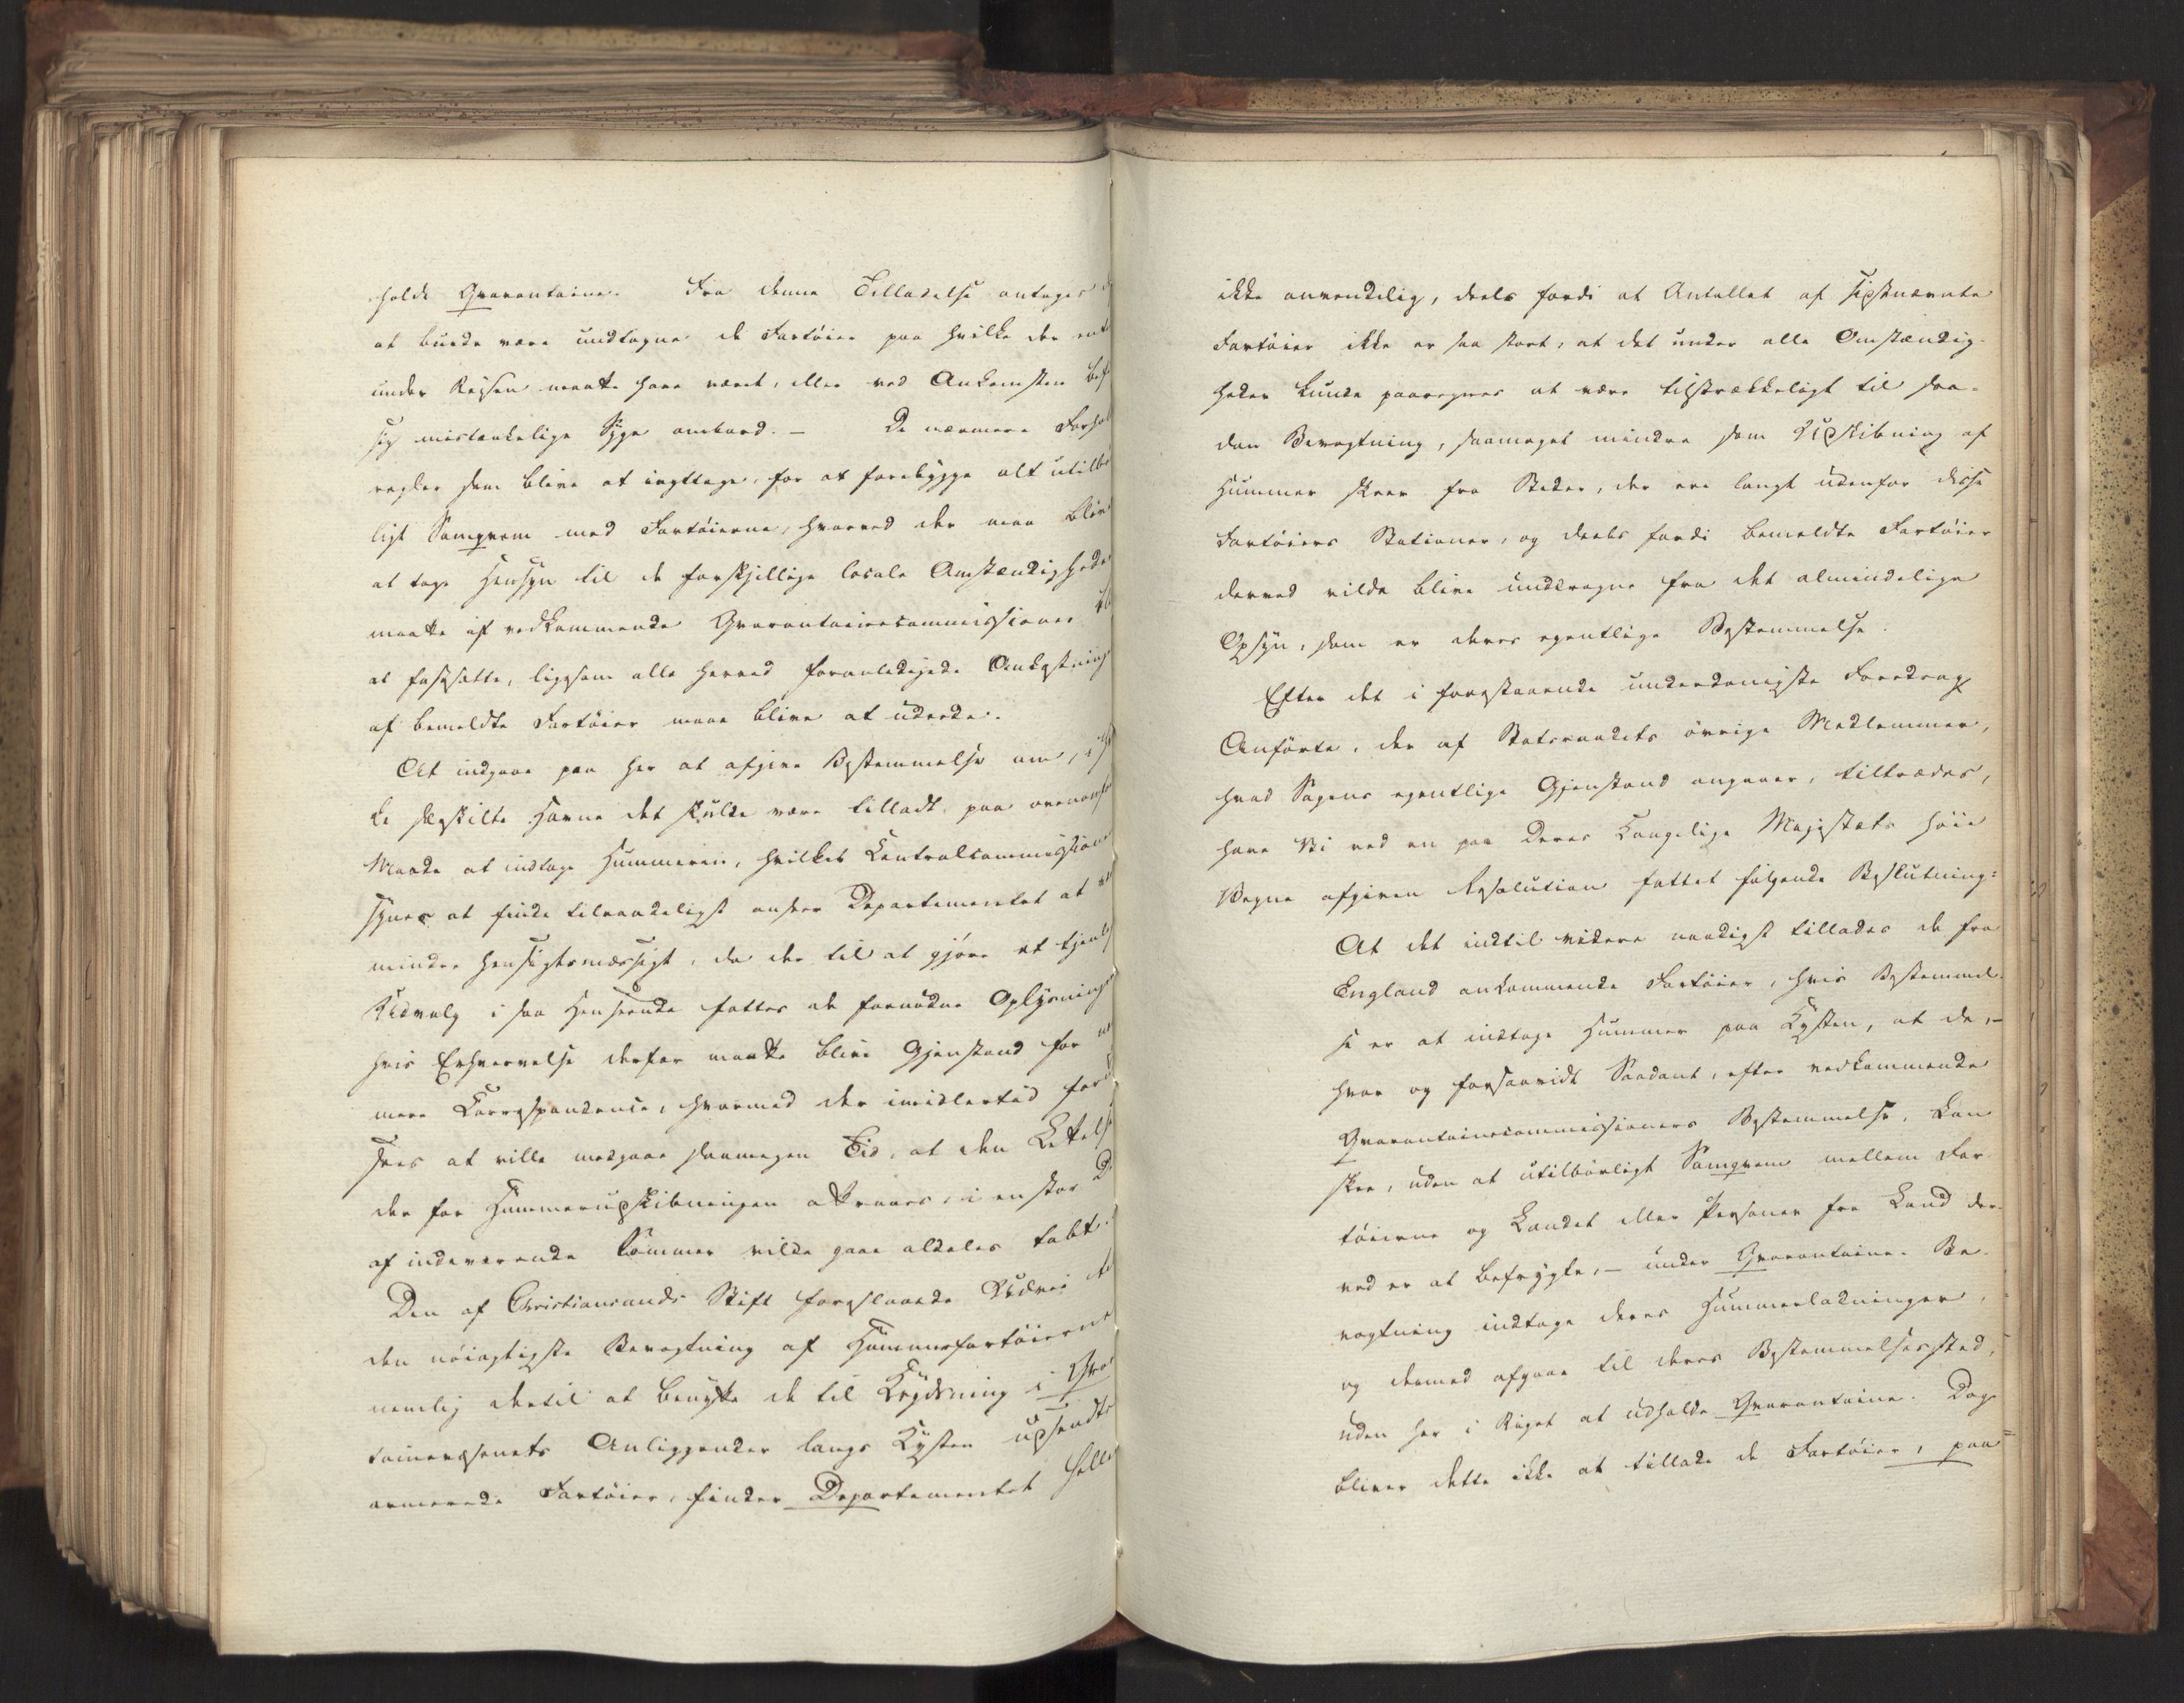 holde Qvarantaine. Fra denne Tilladelse antages
at burde være undtagne de Fartøier paa hvilke der
under Reisen maatte have været, eller ved Ankomsten
sig mistænkelige Syge ombord. — De nærmere
regler som blive at iagttage, for at forebygge alt
ligt Samqvem med Fartøierne, hvorved der maa
at tage Hensyn til de forskjellige locale Omstændigheder
maatte af vedkommende Qvarantainecommissioner
at fastsætte, ligesom alle herved foranledigede
af bemeldte Fartøier maae blive at udrede.
At indgaae paa her at afgive Bestemmelse om,
ke specielle Havne det skulde være tilladt paa
Maade at indtage Hummeren, hvilket
synes at finde tilraadeligst anseer Departementet at
mindre hensigtsmæssigt, da der til at gjøre et
Udvalg i saa Henseende fattes de fornødne
hvis Erhvervelse derfor maatte blive Gjenstand for
mere Correspondence, hvormed der imidlertid
sees at ville medgaae saamegen Tid, at den
der for Hummerudskibningen attraaes, i en stor
af indeværende Sommer vilde gaae aldeles tabt.
Den af Christiansands Stift foreslaaede Udvei
den nøiagtigste Bevogtning af Hummerfartøierne
nemlig dertil at benytte de til Krydsning i
tainevæsenets Anliggender langs Kysten udsendte
armerede Fartøier, finder Departementet
ikke anvendelig, deels fordi at Antallet af sidstnævnte
Fartøier ikke er saa stort, at det under alle Omstændig-
heder kunde paaregnes at være tilstrækkeligt til saa-
dan Bevogtning, saameget mindre som Udskibning af
Hummer skeer fra Steder, der ere langt udenfor disse
Fartøiers Stationer, og deels fordi bemeldte Fartøier
derved vilde blive unddragne fra det almindelige
Opsyn, som er deres egentlige Bestemmelse.
Efter det i forestaaende underdanigste Foredrag
Anførte, der af Statsraadets øvrige Medlemmer,
hvad Sagens egentlige Gjenstand angaaer, tiltrædes,
have Vi ved en paa Deres Kongelige Majestæts høie
Vegne afgiven Resolution fattet følgende Beslutning:
At det indtil videre naadigst tillades de fra
England ankommende Fartøier, hvis Bestemmel-
se er at indtage Hummer paa Kysten, at de, —
hvor og forsaavidt Saadant, efter vedkommende
Qvarantainecommissioners Bestemmelse, kan
skee, uden at utilbørligt Samqvem mellem Far-
tøierne og Landet eller Personer fra Land der-
ved er at befrygte, — under Qvarantaine-Be-
vogtning indtage deres Hummerladninger,
og dermed afgaae til deres Bestemmelsessted,
uden her i Riget at udholde Qvarantaine. Dog
bliver dette ikke at tillade de Fartøier, paa